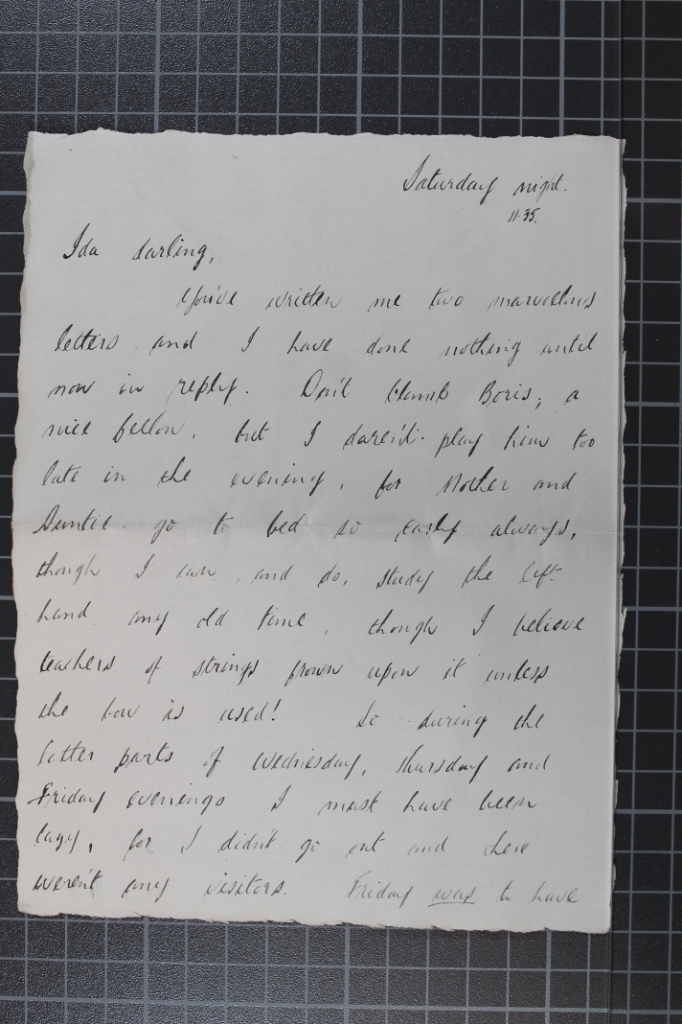 Saturday night.
11.35.
Ida darling,
You've written me two marvellous
letters and I have done nothing until
now in reply. Don't blame Boris, a
nice fellow, but I daren't play him too
late in the evening, for Mother and
Auntie go to bed so early always,
though I can, and do, study the left
hand any old time, though I believe
teachers of strings frown upon it unless
the bow is used! So during the
latter parts of Wednesday, Thursday and
Friday evenings I must have been
lazy, for I didn't go out and there
weren't any visitors. Friday was to have